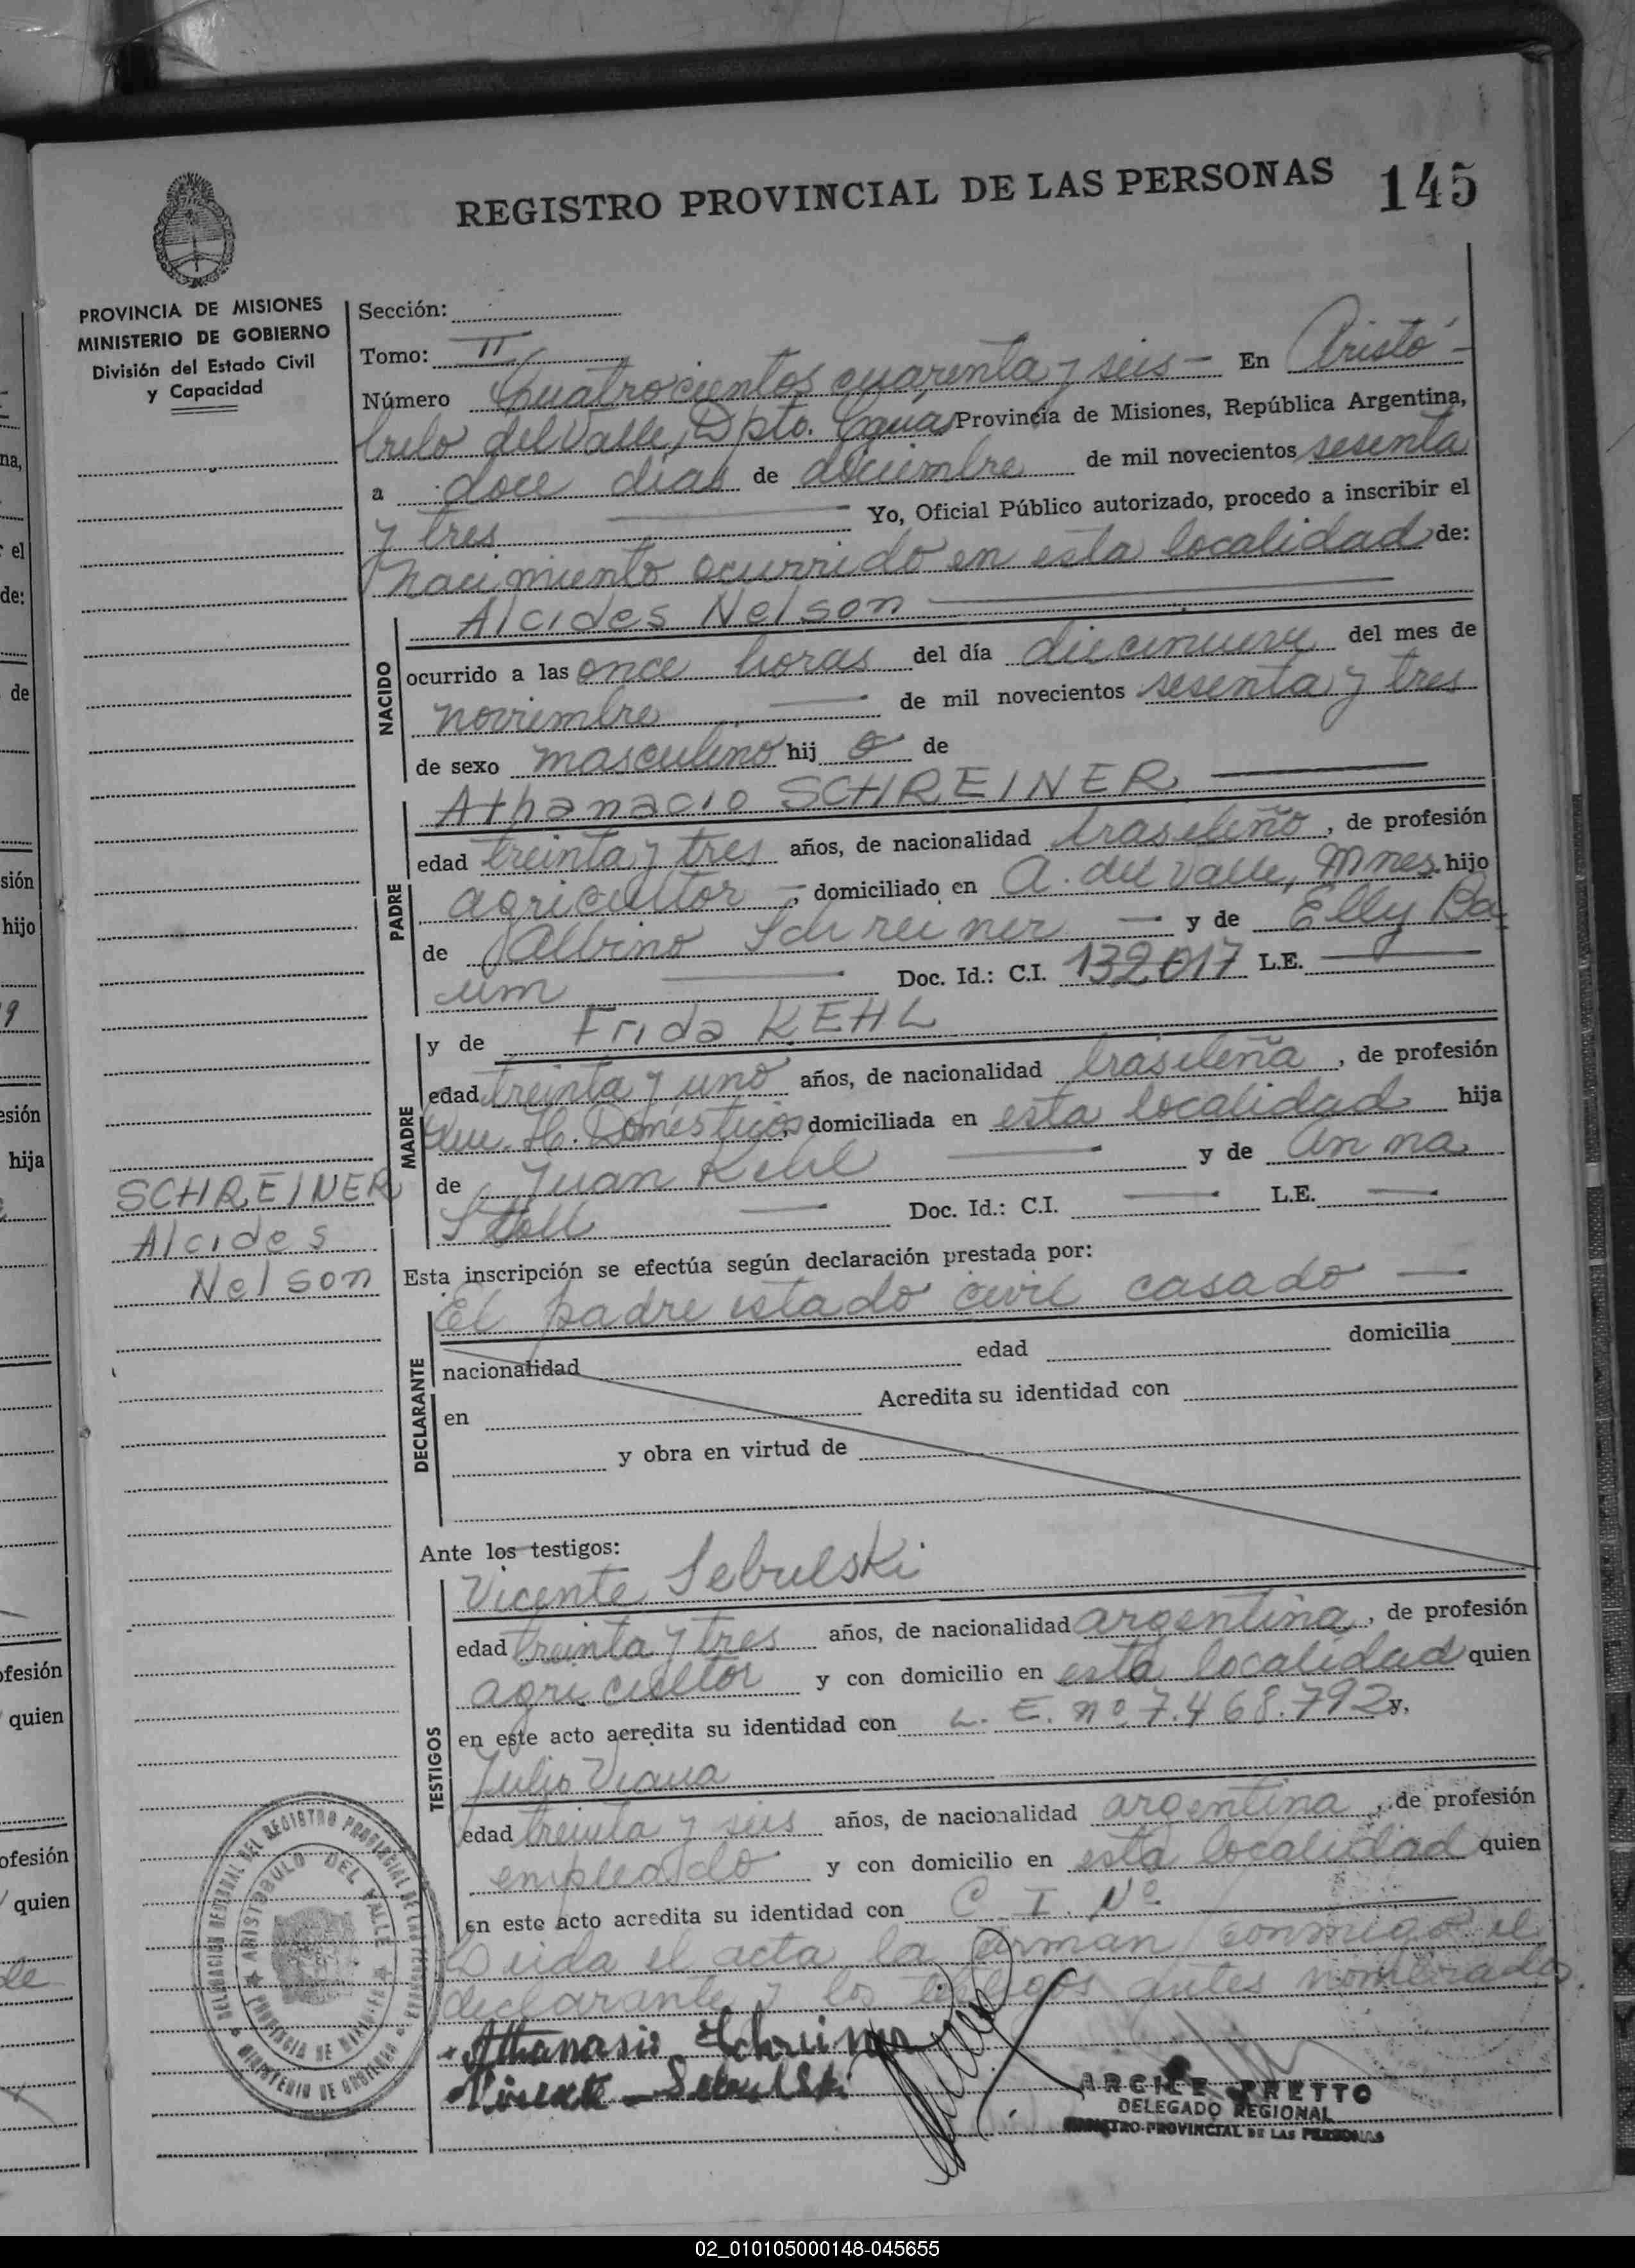 REGISTRO PROVINCIAL DE LAS PERSONAS 145
PROVINCIA DE MISIONES
MINISTERIO DE GOBIERNO
División del Estado Civil
y Capacidad
Sección:
Tomo: II
Número Cuatrocientos cuarenta y seis - En Aristó-
bulo del Valle, Dpto. Cguás Provincia de Misiones, República Argentina,
a doce días de diciembre de mil novecientos sesenta
y tres Yo, Oficial Público autorizado, procedo a inscribir el
nacimiento ocurrido en esta localidad de:
NACIDO
Alcides Nelson
ocurrido a las once horas del día diecinueve del mes de
noviembre de mil novecientos sesenta y tres
de sexo masculino hij o de
PADRE
Athanacio SCHREINER
edad treinta y tres años, de nacionalidad brasileño, de profesión
agricultor -, domiciliado en A. del Valle, Mnes. hijo
de Albino Schreiner y de Elly Ba
um Doc. Id.: C.I. 132017 L.E.
MADRE
y de Frida KEHL
edad treinta y uno años, de nacionalidad brasileña, de profesión
Que. H. Domésticos domiciliada en esta localidad hija
de Juan Kehl y de Anna
Stoll Doc. Id.: C.I. L.E.
SCHREINER
Alcides
Nelson
Esta inscripción se efectúa según declaración prestada por:
DECLARANTE
El padre estado civil casado
nacionalidad edad domicilia
en Acredita su identidad con
y obra en virtud de
Ante los testigos:
TESTIGOS
Vicente Sebulski
edad treinta y tres años, de nacionalidad argentina, de profesión
agricultor y con domicilio en esta localidad quien
en este acto acredita su identidad con L. E. nº 7.468.792 y,
Julio Viana
edad treinta y seis años, de nacionalidad argentina, de profesión
empleado y con domicilio en esta localidad quien
en este acto acredita su identidad con C. I. Nº
Leída el acta la firman conmigo el
declarante y los testigos antes nombrados.
Athanasio Schreiner
Vicente Sebulski
ARCILE PRETTO
DELEGADO REGIONAL
REGISTRO PROVINCIAL DE LAS PERSONAS
DELEGACION REGIONAL DEL REGISTRO PROVINCIAL DE LAS PERSONAS
ARISTOBULO DEL VALLE
PROVINCIA DE MISIONES
MINISTERIO DE GOBIERNO
02_010105000148-045655